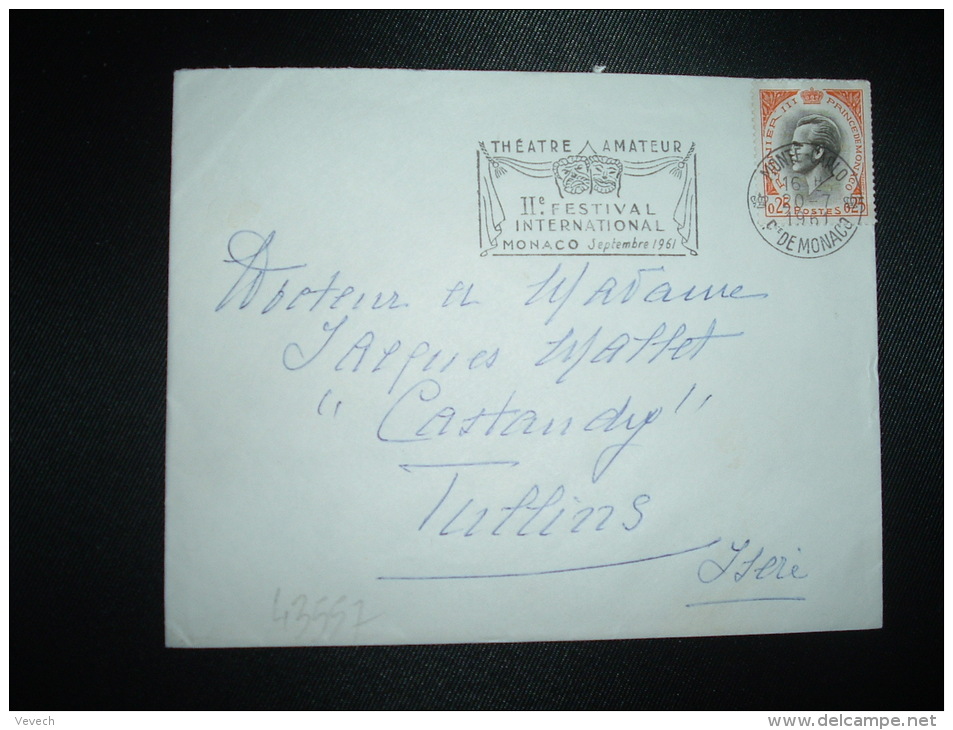 THÉATRE AMATEUR
IIe FESTIVAL
INTERNATIONAL
MONACO Septembre 1961
RAINIER III PRINCE DE MONACO
0,25 POSTES 0,25
MONTE-CARLO
16 H
20-7
1961
Pté DE MONACO
Docteur et Madame
Jacques Mallet
"Castandy"
Tullins
Isère
43557
Vevech
delcampe.net